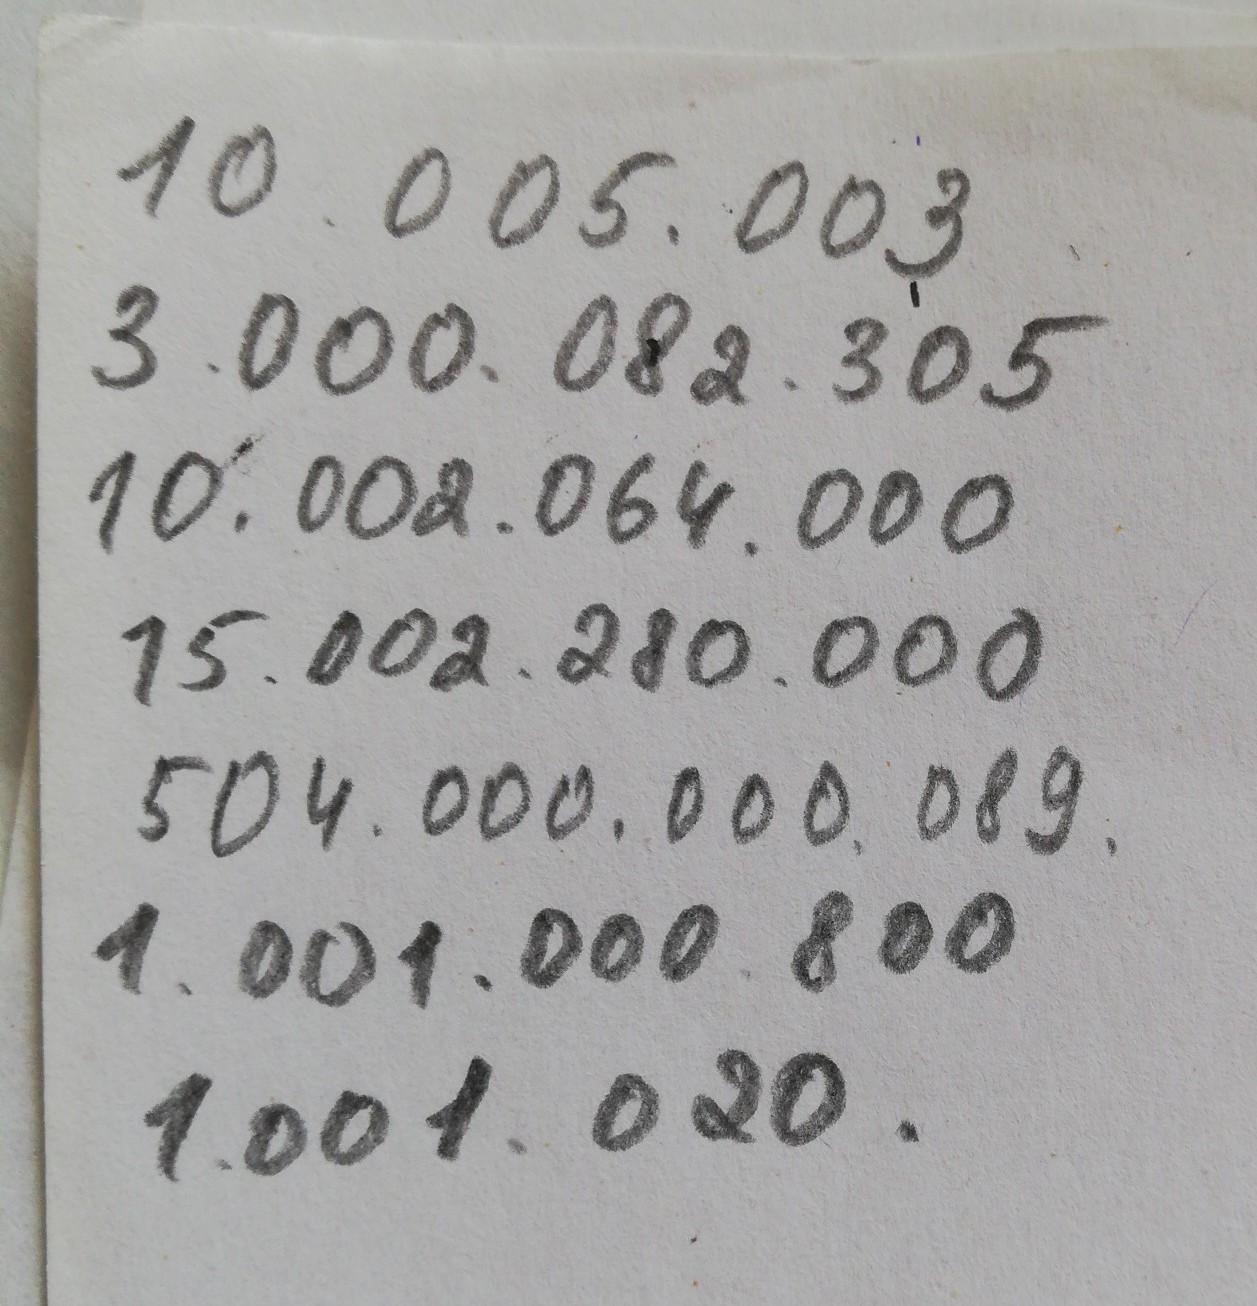 10.005.003
3.000.082.305
10.002.064.000
15.002.280.000
504.000.000.089.
1.001.000.800
1.001.020.